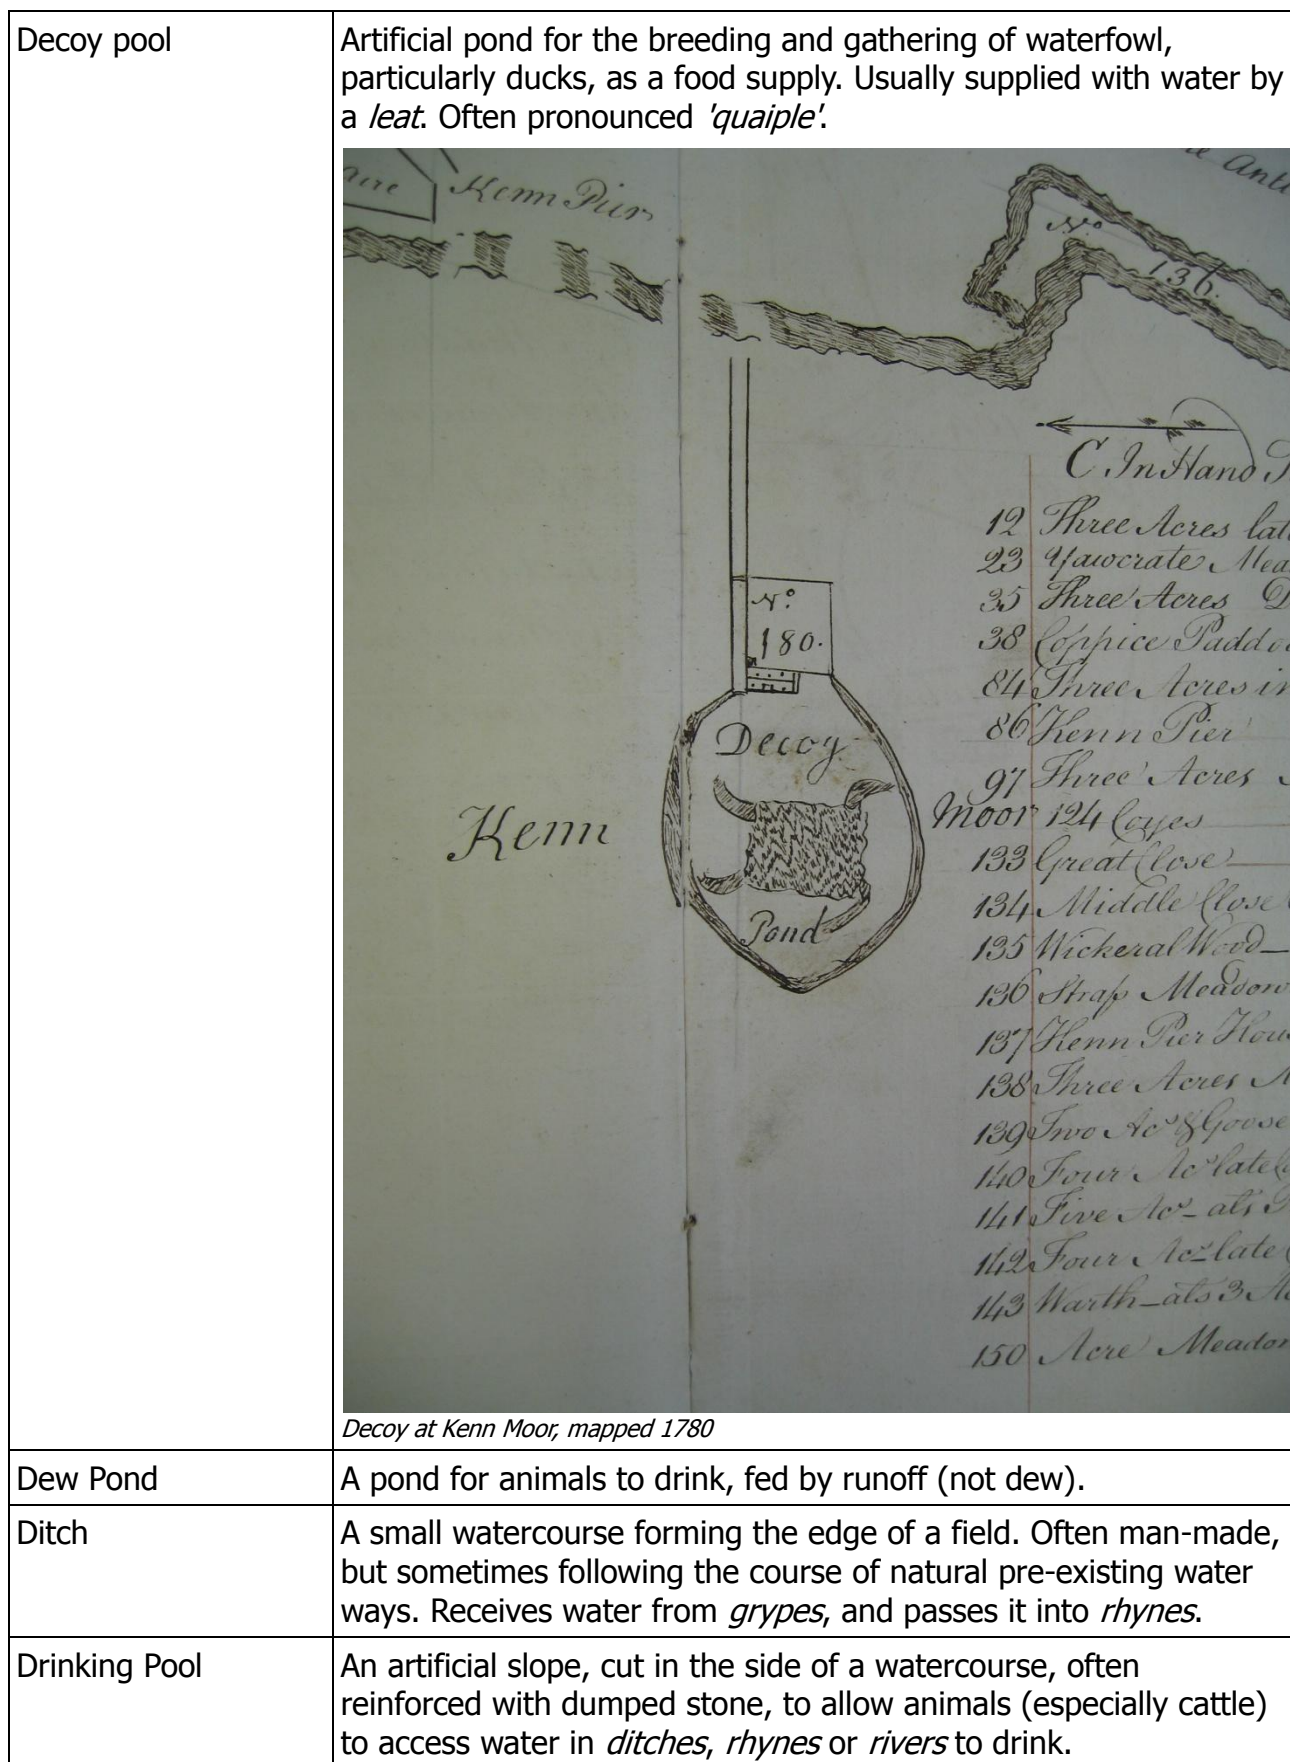 Decoy pool
Artificial pond for the breeding and gathering of waterfowl,
particularly ducks, as a food supply. Usually supplied with water by
a leat. Often pronounced 'quaiple'.
acre
Kenn Pier
No
136.
C. In Hand
12 Three Acres
23 Yawcrate
35 Three Acres
No
180.
38 Coppice
84 Three Acres in
86 Kenn Pier
Decoy
97 Three Acres
Kenn
Moor
124 Coyes
133 Great Close
134 Middle Close
Pond
135 Wickeral Wood
136 Meadow
137 Kenn Pier
138 Three Acres
139 Two Acs & Goose
140 Four Acs late
141 Five Acs als
142 Four Acs late
143 Warth als 3
150 Acre
Decoy at Kenn Moor, mapped 1780
Dew Pond
A pond for animals to drink, fed by runoff (not dew).
Ditch
A small watercourse forming the edge of a field. Often man-made,
but sometimes following the course of natural pre-existing water
ways. Receives water from grypes, and passes it into rhynes.
Drinking Pool
An artificial slope, cut in the side of a watercourse, often
reinforced with dumped stone, to allow animals (especially cattle)
to access water in ditches, rhynes or rivers to drink.